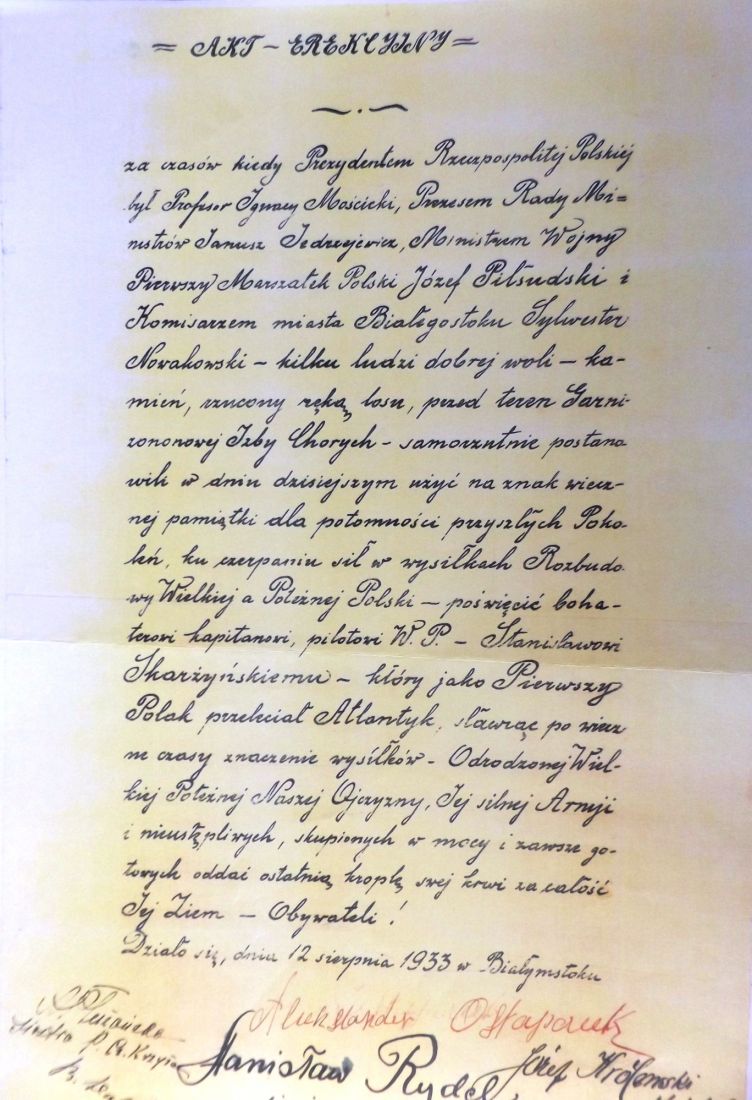 = AKT – EREKCYJNY =
za czasów kiedy Prezydentem Rzeczpospolitej Polskiej
był Profesor Ignacy Mościcki, Prezesem Rady Mi=
nistrów Janusz Jedrzejewicz, Ministrem Wojny
Pierwszy Marszałek Polski Józef Piłsudski i
Komisarzem miasta Białegostoku Sylwester
Nowakowski – kilku ludzi dobrej woli – ka-
mień, rzucony ręką losu, przed teren Garni-
zononowej Izby Chorych – samorzutnie postano
wili w dniu dzisiejszym użyć na znak wiecz-
nej pamiątki dla potomności przyszłych Poko-
leń, ku czerpaniu sił w wysiłkach Rozbudo
wy Wielkiej a Potężnej Polski – poświęcić boha-
terowi kapitanowi, pilotowi W. P. – Stanisławowi
Skarżyńskiemu – który jako Pierwszy
Polak przeleciał Atlantyk, sławiąc po wiecz
ne czasy znaczenie wysiłków – Odrodzonej Wiel-
kiej Potężnej Naszej Ojczyzny, Jej silnej Armji
i nieustępliwych, skupionych w mocy i zawsze go-
towych oddać ostatnią kroplę swej krwi za całość
Jej Ziem – Obywateli!
Działo się, dnia 12 sierpnia 1933 w Białymstoku
Aleksander Ostapczuk
Stanisław Rydel
Józef Królewski